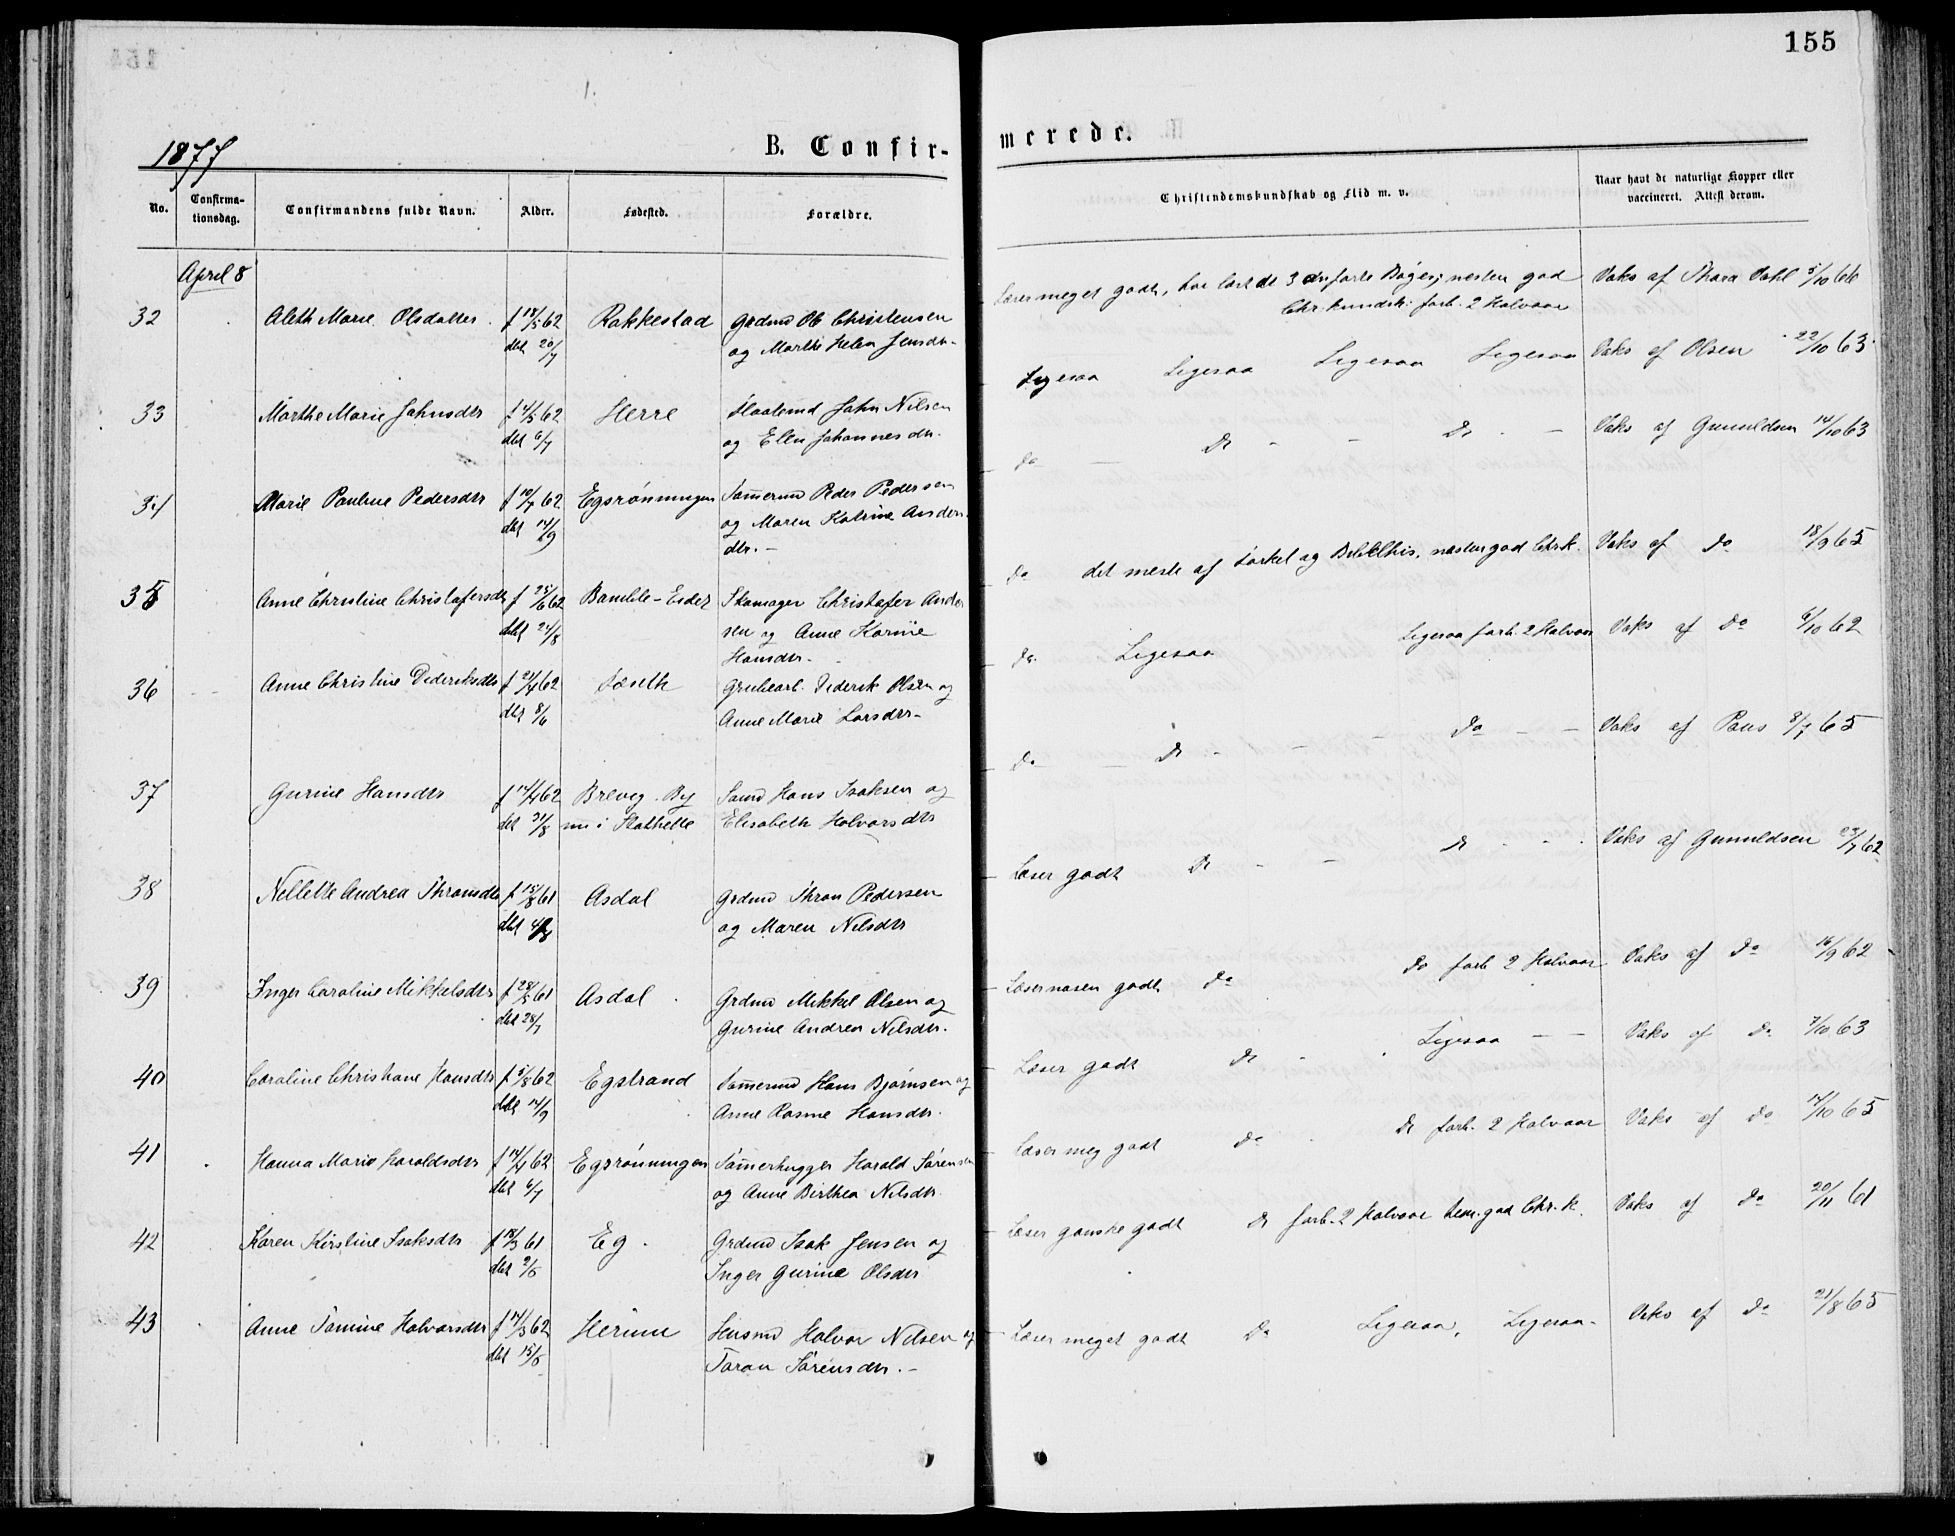 155
1877
B. Confir-
merede.
No.
Confirma-
tionsdag.
Confirmandens fulde Navn.
Alder.
Fødested.
Forældre.
Christendomskundskab og Flid m. v.
Naar havt de naturlige Kopper eller
vaccineret. Attest derom.
April 8
32 Aleth Marie Olsdatter f 18/5 62 Rakkestad Grdmd Ol Christensen
dbt 20/7 og Marthe Helen Jensdtr
Læser meget godt, har lært de 3 anførte Bøger; nesten god
Chr. kundsk: forb. 2 Halvaar
Vaks af Thora Vahl 5/10 66
33 Marthe Marie Jahnsdtr f 4/5 62 Herre Pladsmd Jahn Nilsen
dbt 6/7 og Ellen Johannesdtr.
Ligesaa Ligesaa Ligesaa Ligesaa Vaks af Olsen 22/10 63
34 Marie Pauline Pedersdtr f 10/7 62 Egsrønningen Tømermd Peder Pedersen
dbt 14/9 og Maren Katrine Anders
dtr.-
Do - Do - - Do - - Vaks af Gunuldsen 14/10 63
35 Anne Christine Christofersdtr f 25/6 62 Bamble-Eidet Skomager Christofer Ander
dbt 24/8 sen og Anne Karine
Hansdtr.
Do det meste af Forkl og Bibelhis. nesten god Chrk. Vaks af Do 18/9 65
36 Anne Christine Dideriksdtr f 21/4 62 Sæseth Grubearb. Diderik Olsen og
dbt 8/6 Anne Marie Larsdtr-
Do. Ligesaa Ligesaa forb. 2 Halvaar Vaks af Do 6/10 62
37 Gurine Hansdtr f 14/4 62 Brevig By Sømd Hans Isaksen og
dbt 31/8 nu i Stathelle Elisabeth Halvorsdtr
Do - Do - - - Do - - Vaks af Paus 3/7 65
38 Nellette Andrea Thronsdtr f 15/8 61 Asdal Grdmd Thron Pedersen
dbt og Maren Nilsdtr
Læser godt Do - - Do - - Vaks af Gunuldsen 23/7 62
39 Inger Caroline Mikkelsdtr f 28/5 61 Asdal Grdmd Mikkel Olsen og
dbt 28/7 Gurine Andrea Nilsdtr.
Læser næsen godt Do Do forb 2 Halvaar Vaks af Do 16/9 62
40 Caroline Christiane Hansdtr f 5/8 62 Egstrand Tømermd Hans Bjørnsen og
dbt 14/9 Anne Rasme Hansdtr.
Læser godt Do - Ligesaa - - Vaks af Do 7/10 63
41 Hanna Marie Haraldsdtr f 14/4 62 Egsrønningen Tømerhugger Harald Sørensen
dbt 6/7 og Anne Birthea Nilsdtr.
Læser meg godt Do Do forb. 2 Halvaar Vaks af Do 14/10 65
42 Karen Kirstine Isaksdtr f 18/3 61 Eg. Grdmd Isak Jensen og
dbt 2/5 Inger Gurine Olsdtr
Læser ganske godt Do forb. 2 Halvaar tem. god Chr. k. Vaks af Do 20/11 61
43 Anne Tomine Halvorsdtr f 14/3 62 Herum Husmd Halvor Nilsen og
dbt 15/5 Taran Sørensdtr.-
Læser meget godt Do Ligesaa, Ligesaa- Vaks af Do 21/8 65